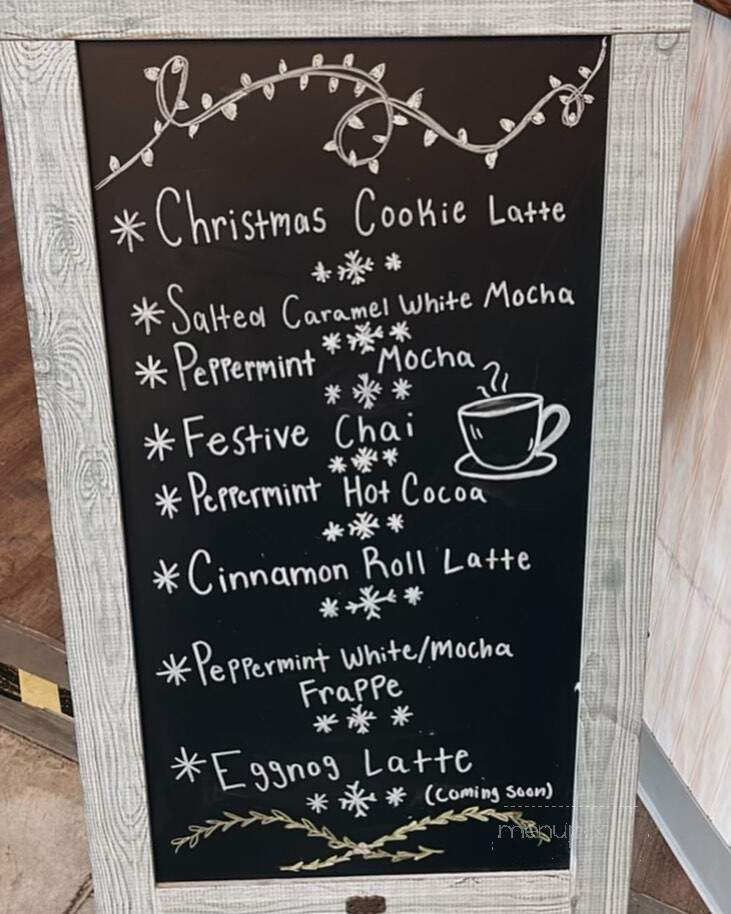 * Christmas Cookie Latte
* Salted Caramel White Mocha
* Peppermint Mocha
* Festive Chai
* Peppermint Hot Cocoa
* Cinnamon Roll Latte
* Peppermint White/Mocha
Frappe
* Eggnog Latte
(Coming Soon)